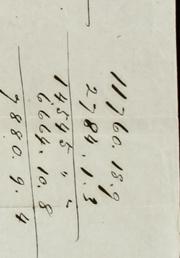 11760.18.9
2784.1.3
14545 " "
6,664.10.8
7880.9.4